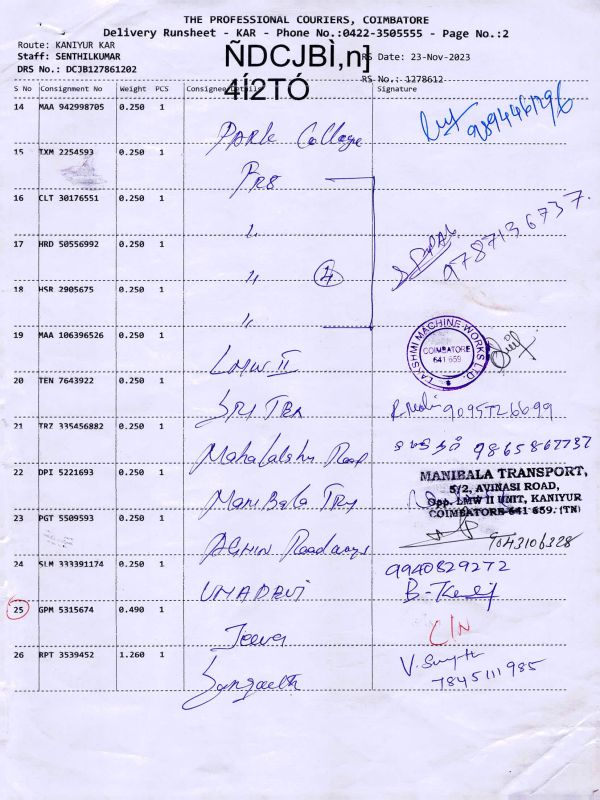 THE PROFESSIONAL COURIERS, COIMBATORE
Delivery Runsheet - KAR - Phone No.:0422-3505555 - Page No.:2
Route: KANIYUR KAR
Staff: SENTHILKUMAR
RS Date: 23-Nov-2023
DRS No.: DCJB127861202
RS No.: 1278612
ÑDCJBÌ,n]
4Í2TÓ
S No Consignment No Weight PCS Consignee Details Signature
14 MAA 942998705 0.250 1 Park College
15 TXM 2254593 0.250 1 Prs
16 CLT 30176551 0.250 1 "
17 HRD 50556992 0.250 1 " 4 9787136737.
18 HSR 2905675 0.250 1 "
19 MAA 106396526 0.250 1 LMW II LAKSHMI MACHINE WORKS LTD. COIMBATORE 641 659
20 TEN 7643922 0.250 1 SRI TEA 9095726699
21 TRZ 335456882 0.250 1 9865867737
22 DPI 5221693 0.250 1 ManiBala
MANIBALA TRANSPORT,
5/2, AVINASI ROAD,
Opp. LMW II UNIT, KANIYUR
COIMBATORE-641 659. (TN)
23 PGT 5509593 0.250 1 Roadways 9043106328
24 SLM 333391174 0.250 1 UMADEVI 9940829272
25 GPM 5315674 0.490 1 Jeeva C/N
26 RPT 3539452 1.260 1 7845111985